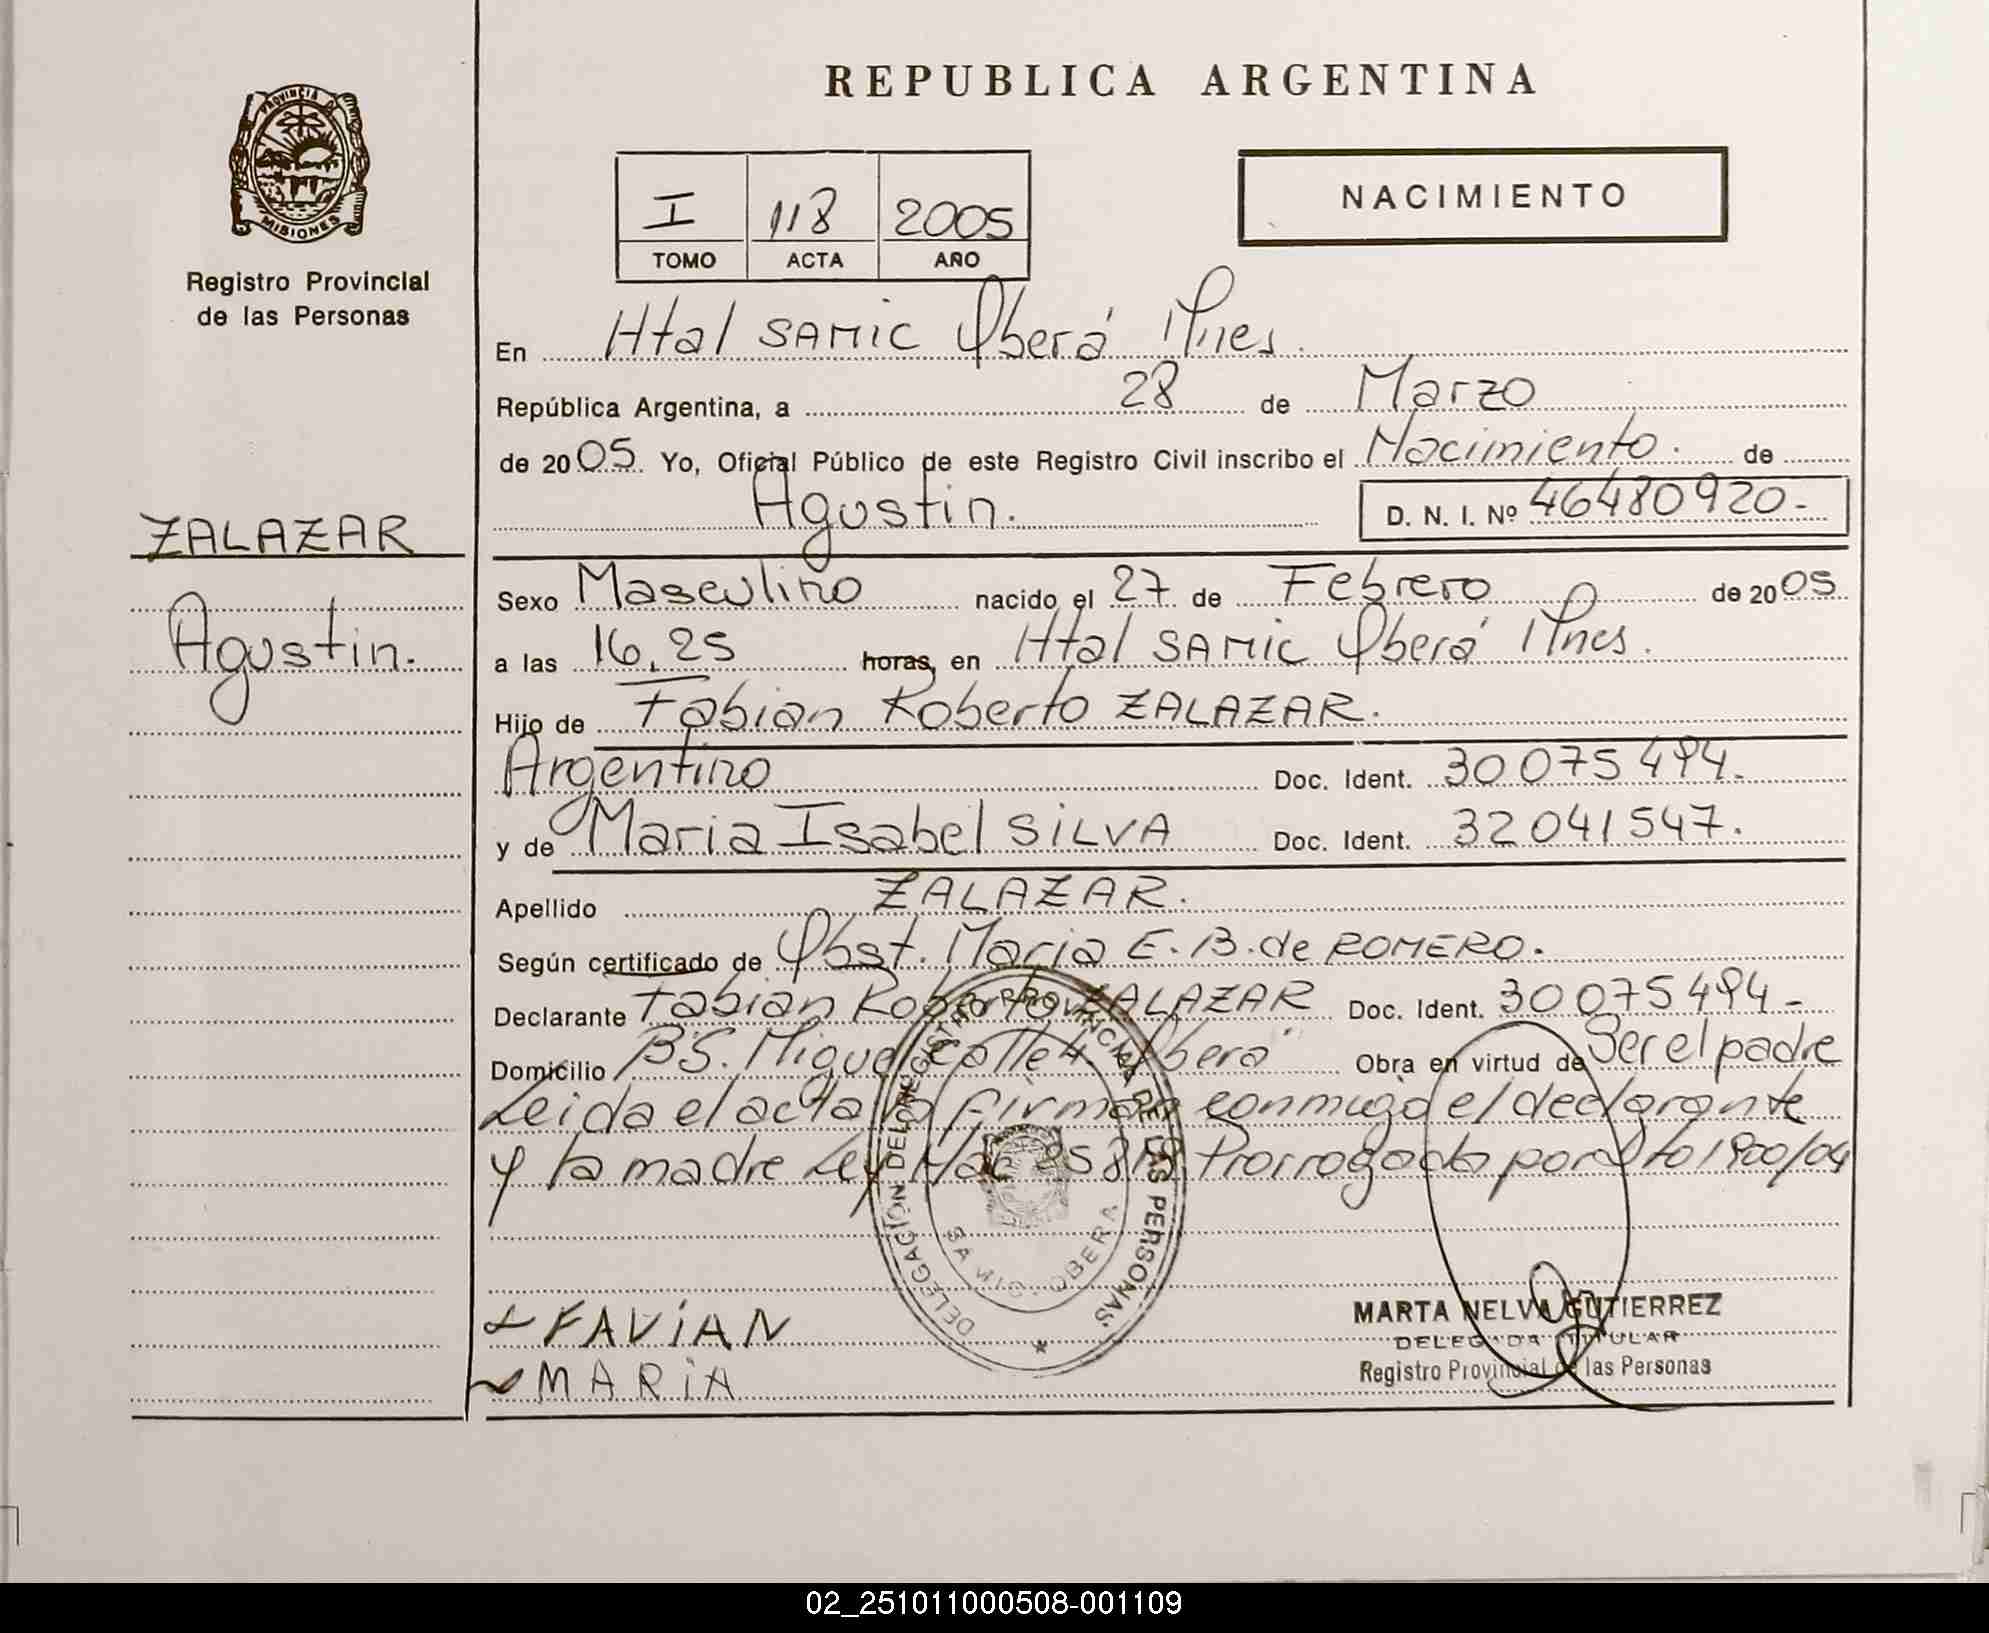 PROVINCIA DE
MISIONES
Registro Provincial
de las Personas
ZALAZAR
Agustin.
REPUBLICA ARGENTINA
I 118 2005
TOMO ACTA AÑO
NACIMIENTO
En Htal SAMIC Oberá Mnes.
República Argentina, a 28 de Marzo
de 2005. Yo, Oficial Público de este Registro Civil inscribo el Nacimiento. de
Agustin. D. N. I. Nº 46480920-
Sexo Masculino nacido el 27 de Febrero de 2005
a las 16,25 horas, en Htal SAMIC Oberá Mnes.
Hijo de Fabian Roberto ZALAZAR.
Argentino Doc. Ident. 30075494.
y de Maria Isabel SILVA Doc. Ident. 32041547.
Apellido ZALAZAR.
Según certificado de Obst. Maria E. B. de ROMERO.
Declarante Fabian Roberto ZALAZAR Doc. Ident. 30075494-
Domicilio Bº S. Miguel calle 4 Oberá Obra en virtud de Ser el padre
Leida el acta la firman conmigo el declarante
y la madre Ley Nac 25819 Prorrogado por Dto 1900/04
DELEGACIÓN DEL REGISTRO PROVINCIAL DE LAS PERSONAS
SAMIC - OBERA
FAVIAN
MARIA
MARTA NELVA GUTIERREZ
DELEGADA TITULAR
Registro Provincial de las Personas
02_251011000508-001109